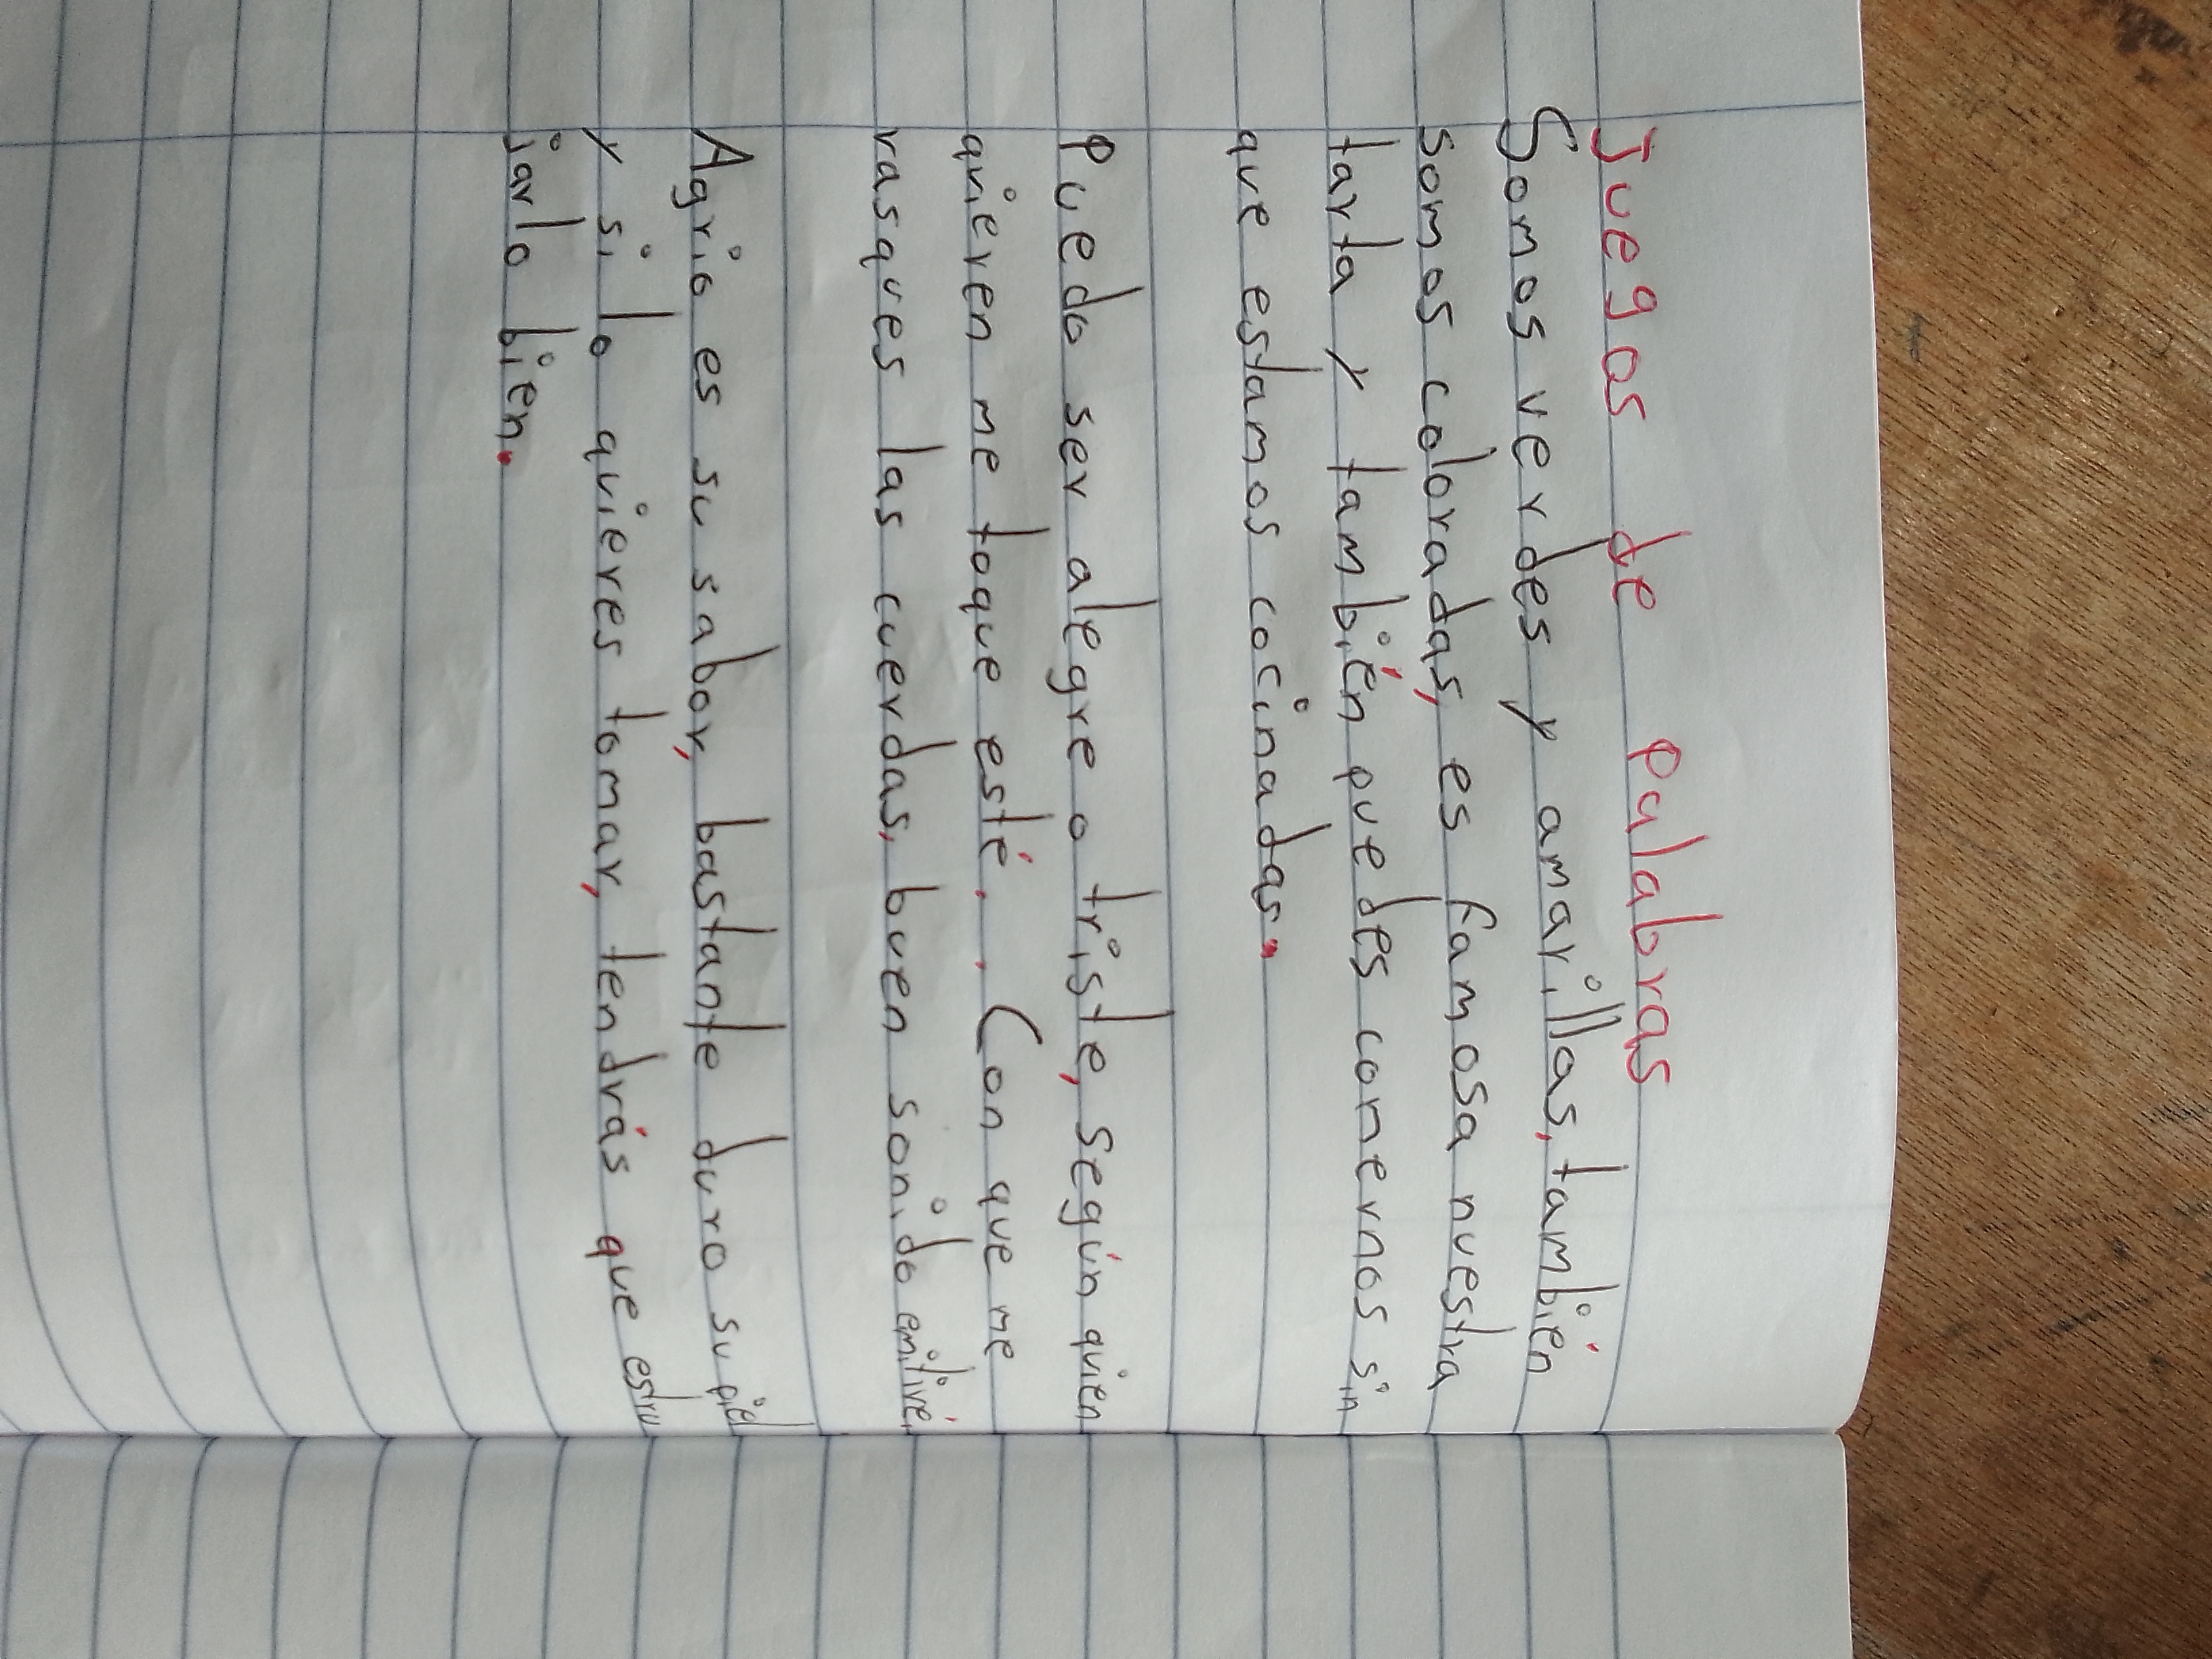 Juegos de palabras
Somos verdes y amarillas, también
somos coloradas, es famosa nuestra
tarta y también puedes comernos sin
que estamos cocinadas.
Puedo ser alegre o triste, según quien
quieren me toque esté. . Con que me
rasques las cuerdas, buen sonido emitiré.
Agrio es su sabor, bastante duro su piel
y si lo quieres tomar, tendrás que estru
jarlo bien.